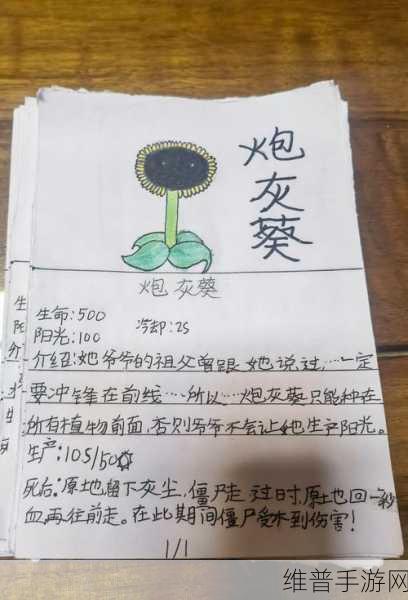 炮灰葵
炮灰葵
生命:500
阳光:100 冷却:2S
介绍:她爷爷的祖父曾跟她说过,…一定
要冲锋在前线…所以…炮灰葵只能种在
所有植物前面,否则爷爷不会让她生产阳光。
生产:10S/50
死后:原地留下灰尘,僵尸走过时,原地回一秒
血,再往前走。在此期间僵尸受不到伤害!
1/1
维普手游网